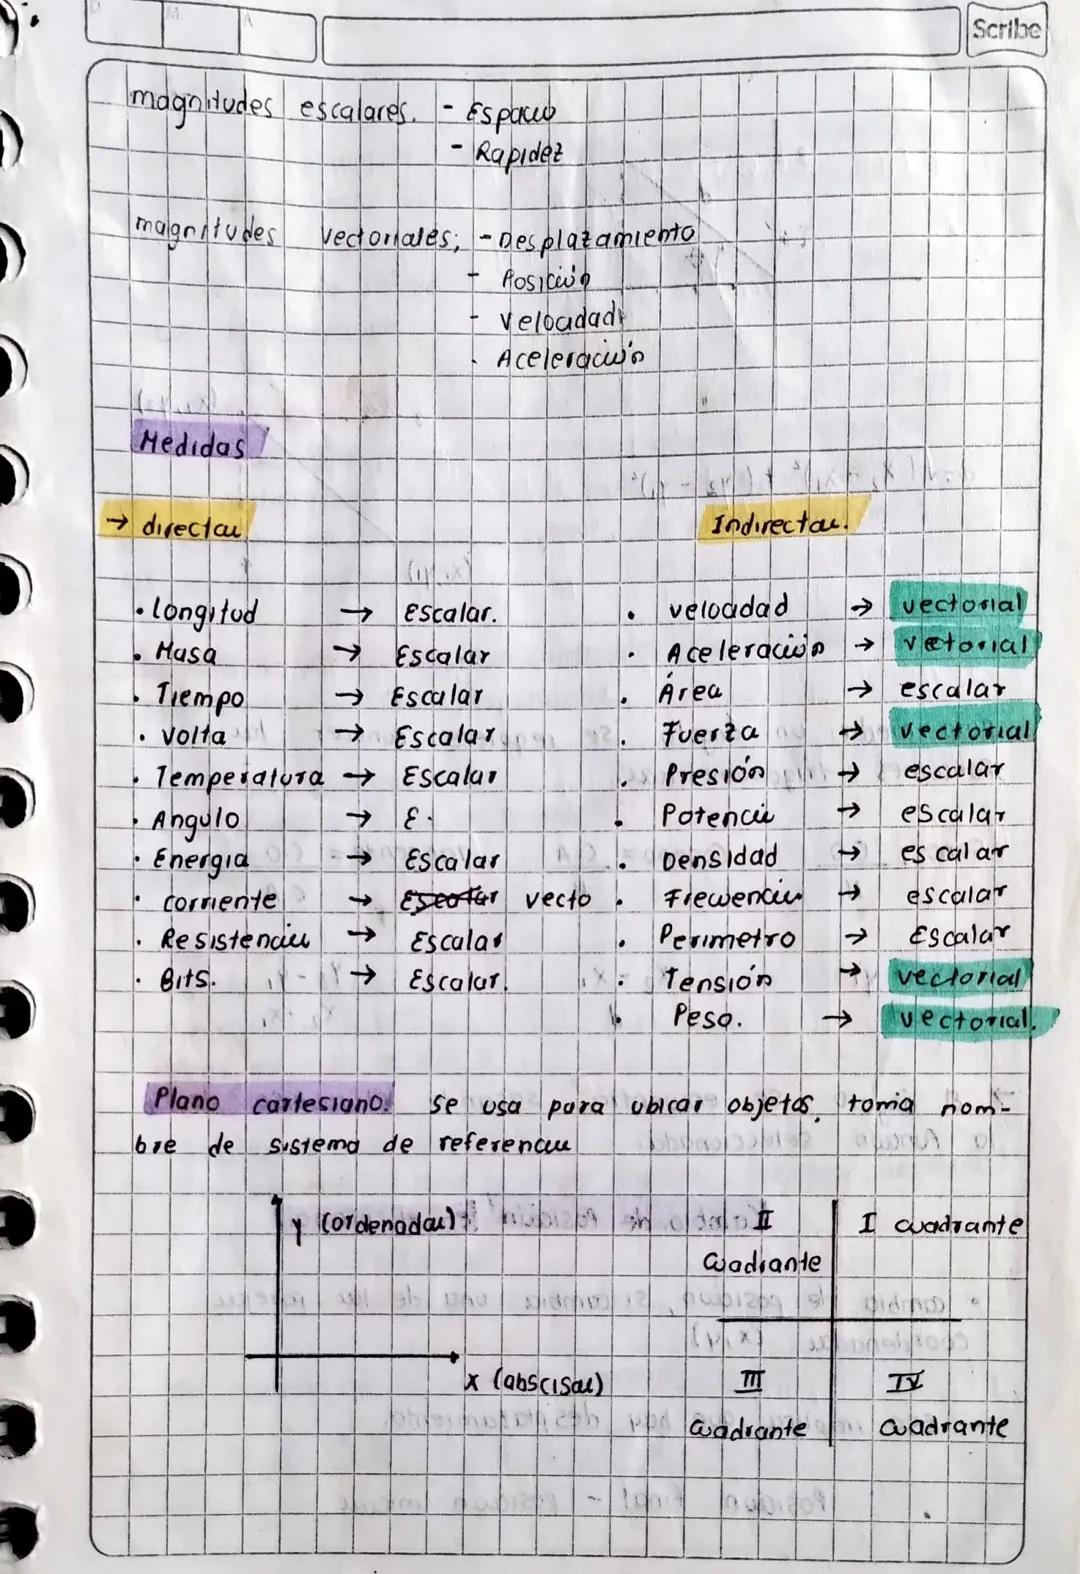 Scribe
magnitudes escalares. - Espacio
- Rapidez
magnitudes vectoriales; - Desplazamiento
- Posición
- velocidad
- Aceleración
Medidas
→ directas Indirectas.
• Longitud → Escalar. • velocidad → vectorial
• Masa → Escalar • Aceleración → vetorial
• Tiempo → Escalar • Área → escalar
• volta → Escalar • Fuerza → vectorial
• Temperatura → Escalar • Presión → escalar
• Angulo → E. • Potencia → escalar
• Energia → Escalar • Densidad → escalar
• corriente → Escalar vecto • Frecuencia → escalar
• Resistencia → Escalar • Perimetro → Escalar
• Bits. → Escalar. • Tensión → vectorial
• Peso. → vectorial.
Plano cartesiano. se usa para ubicar objetos, toma nom-
bre de sistema de referencia
y (ordenadas) II I cuadrante
cuadrante
x (abscisas) III IV
cuadrante cuadrante